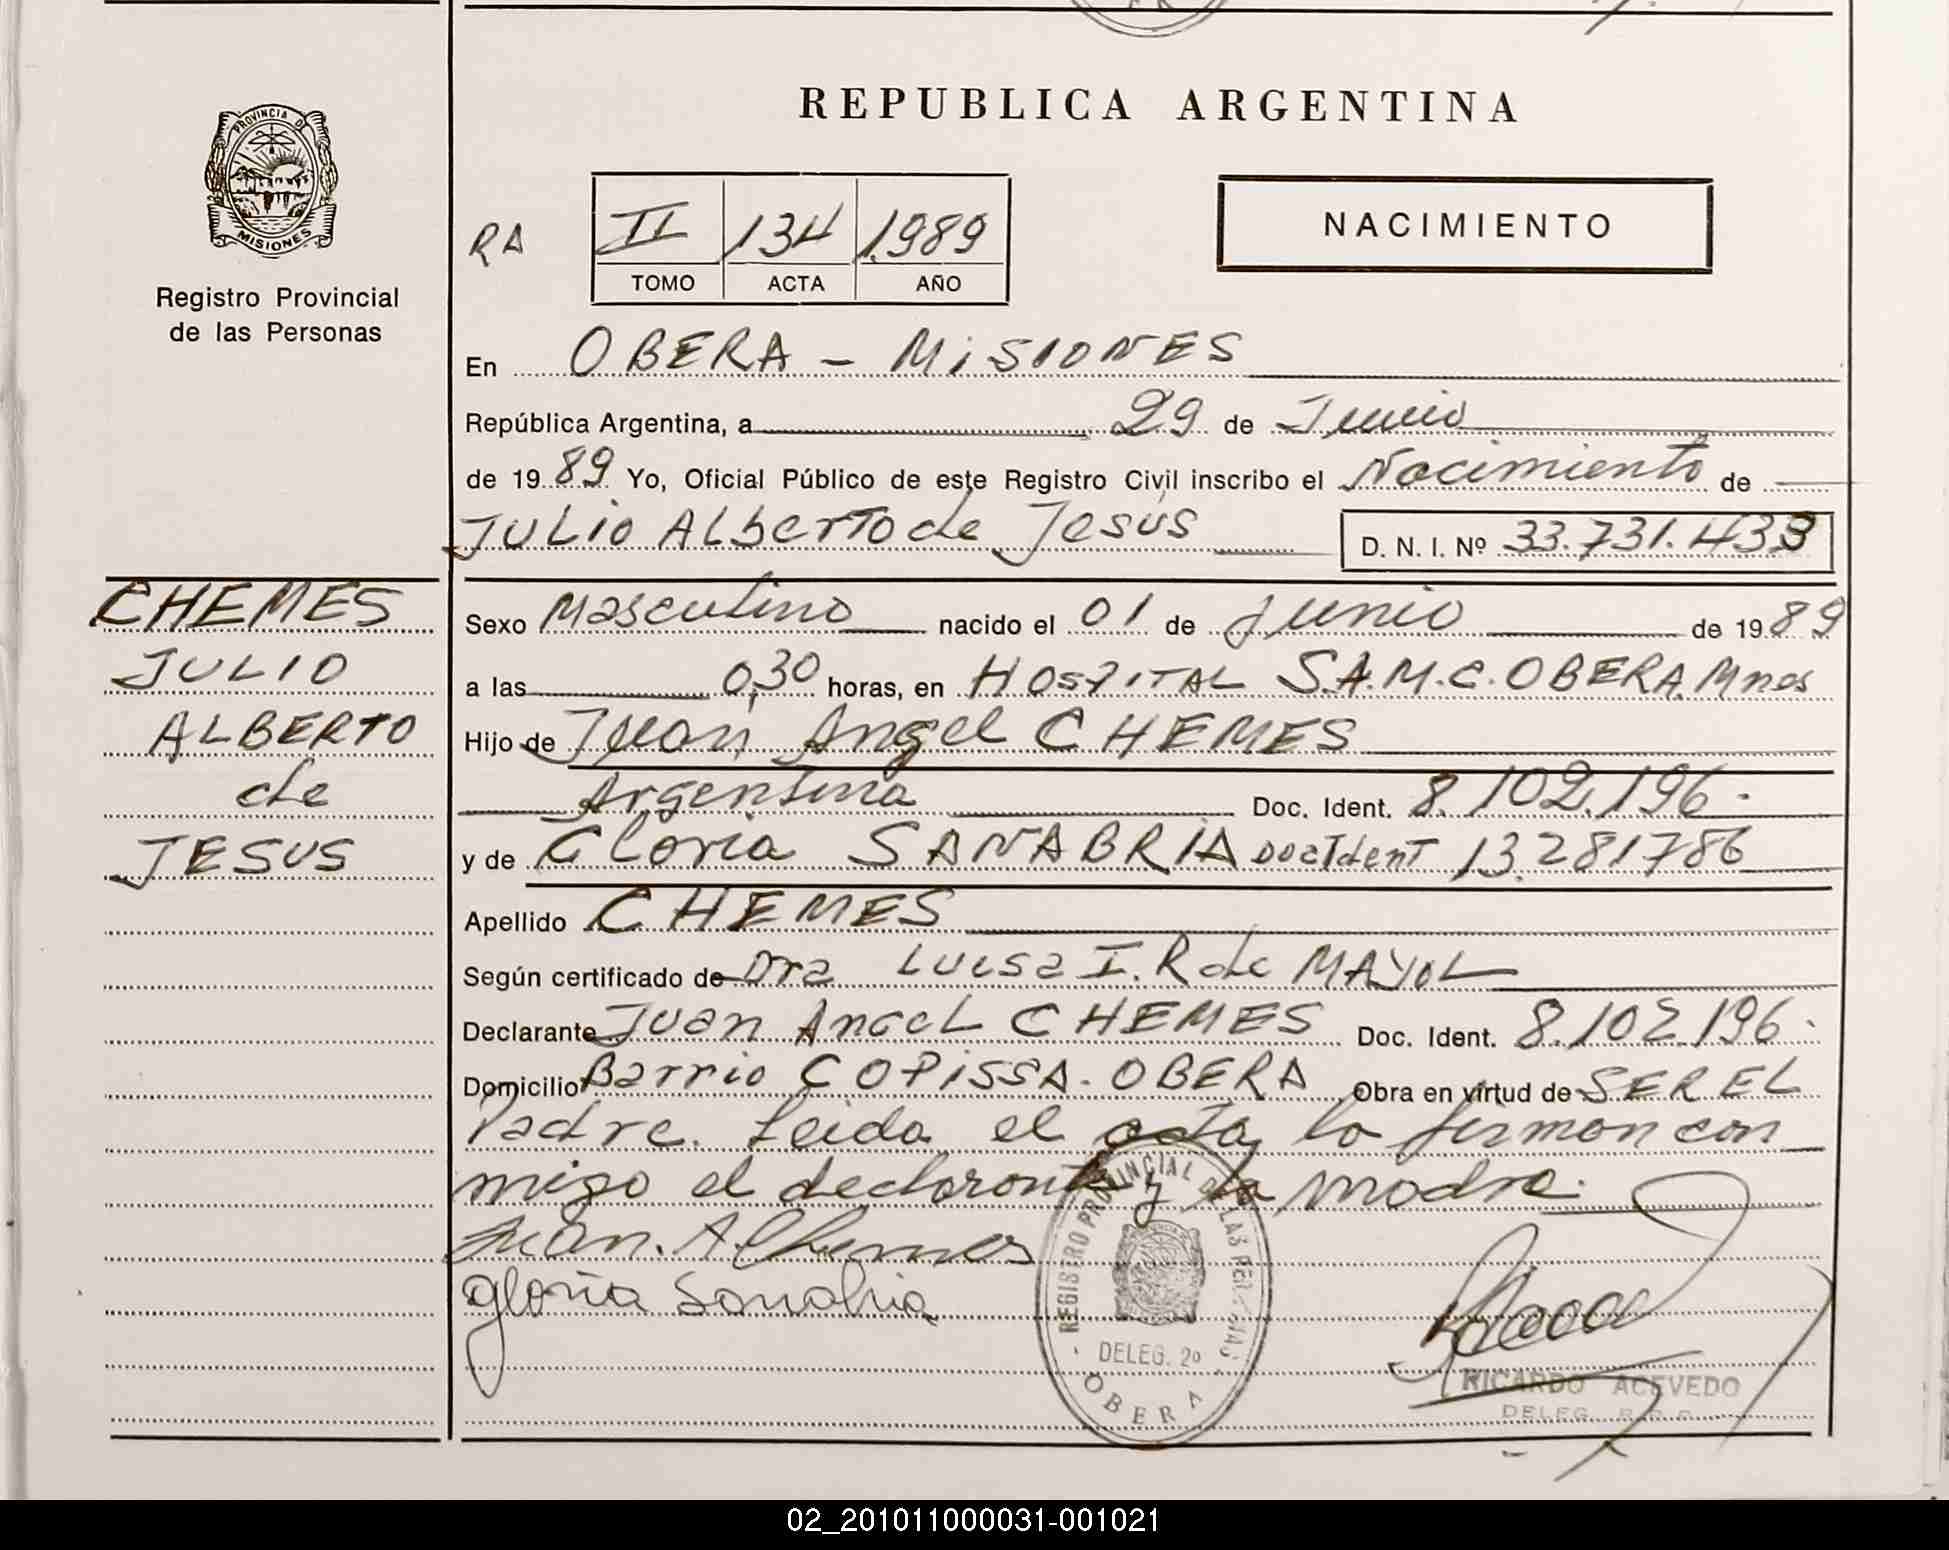 REPUBLICA ARGENTINA
PROVINCIA DE
MISIONES
Registro Provincial
de las Personas
RA II 134 1.989
TOMO ACTA AÑO
NACIMIENTO
En OBERA - MISIONES
República Argentina, a 29 de Junio
de 1989 Yo, Oficial Público de este Registro Civil inscribo el Nacimiento de
JULIO ALberTO de Jesús D. N. I. Nº 33.731.433
CHEMES
JULIO
ALBERTO
de
JESUS
Sexo Masculino nacido el 01 de Junio de 1989
a las 0,30 horas, en HOSPITAL S.A.M.C. OBERA Mnes
Hijo de Juan Angel CHEMES
Argentina Doc. Ident. 8.102.196.
y de Gloria SANABRIA Doc Ident 13.281786
Apellido CHEMES
Según certificado de Dra LUISA I. R de MAYOL
Declarante Juan Angel CHEMES Doc. Ident. 8.102.196.
Domicilio Barrio COPISSA. OBERA Obra en virtud de SER EL
Padre. Leida el acta, la firman con
migo el declarante y la madre.
Juan. A. Chemes
gloria Sanabria
REGISTRO PROVINCIAL DE LAS PERSONAS
DELEG. 2º
OBERA
RICARDO ACEVEDO
DELEG.
02_201011000031-001021